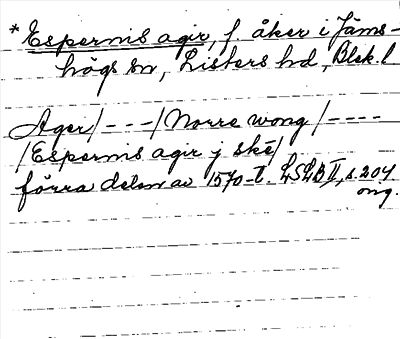 * Espernis agir, f. åker i Jäms-
högs sn, Listers hd, Blek. l
Ager/---/Norre wong/----
/Espernis agir j skē/
förra delen av 1570-t. LSLB II, s. 204
orig.